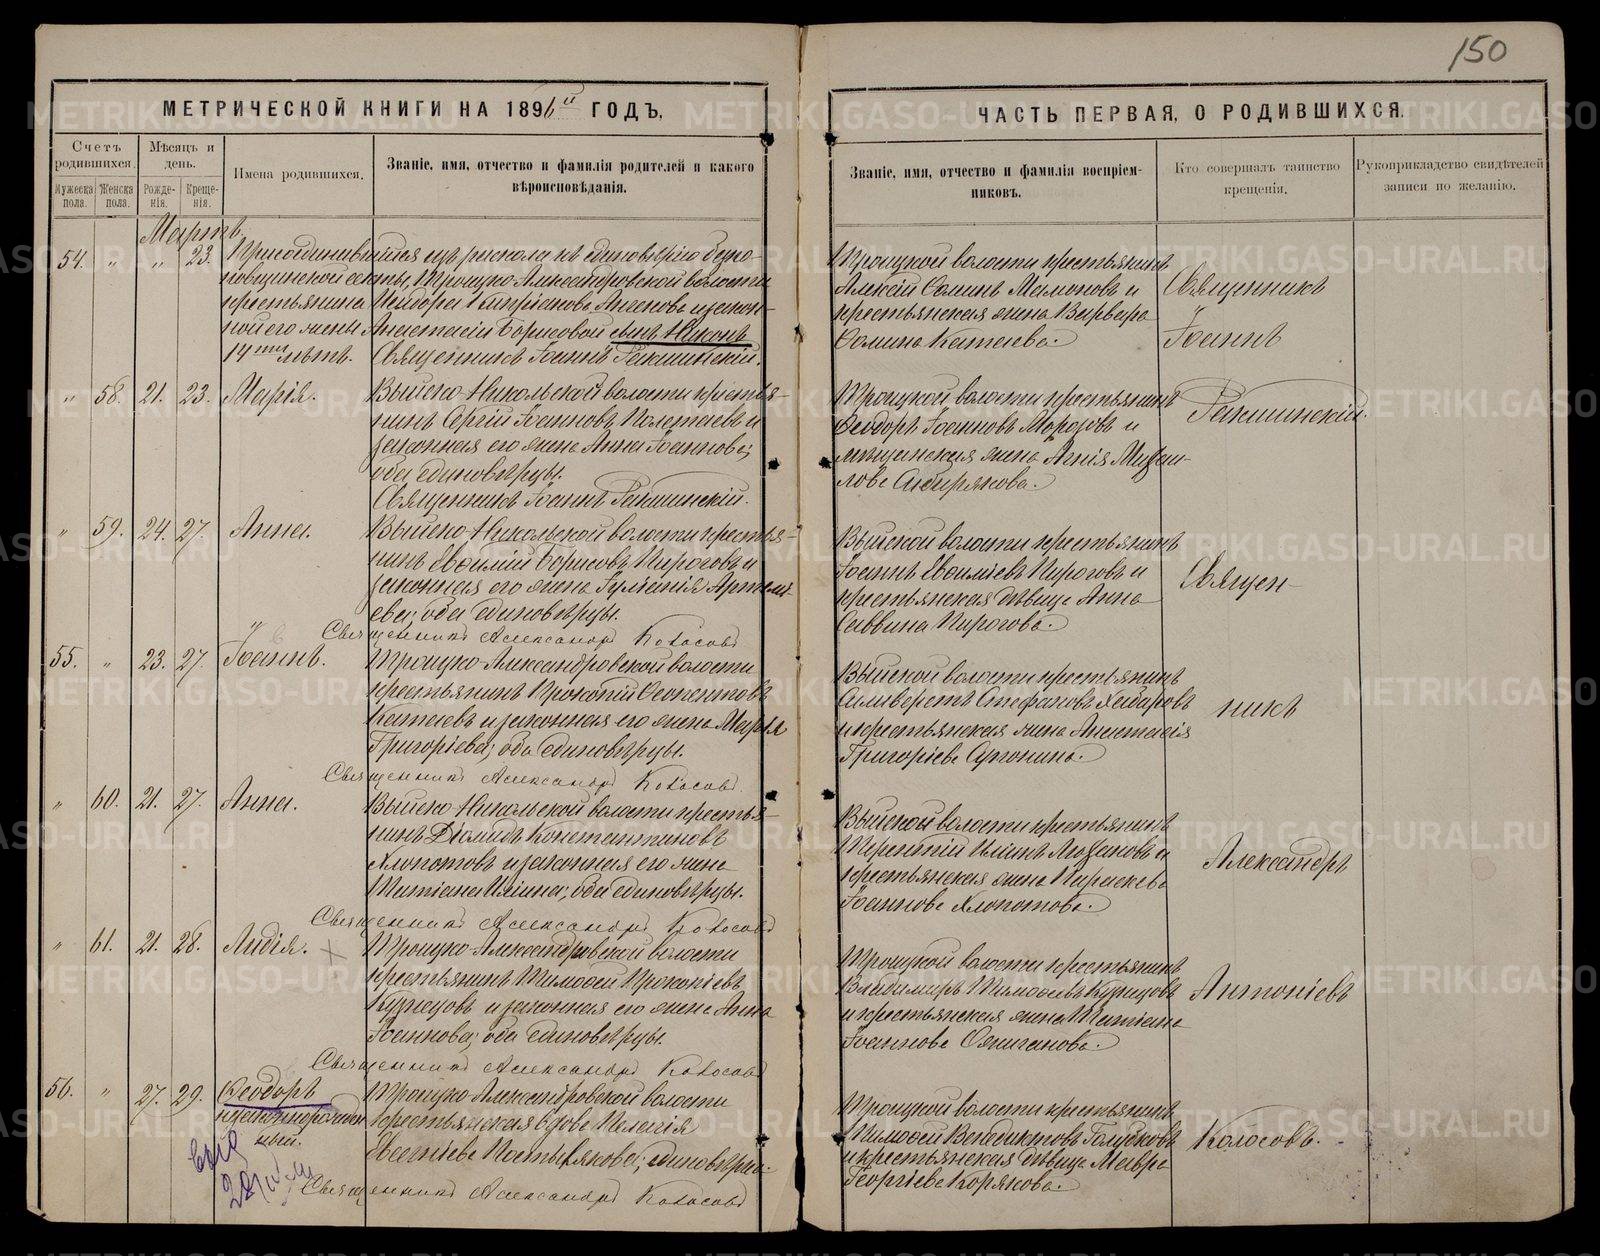 150
МЕТРИЧЕСКОЙ КНИГИ НА 1896й ГОДЪ,
ЧАСТЬ ПЕРВАЯ, О РОДИВШИХСЯ.
Счетъ родившихся.
Мужеска пола.
Женска пола.
Мѣсяцъ и день.
Рожде-
нія.
Креще-
нія.
Имена родившихся.
Званіе, имя, отчество и фамилія родителей и какого
вѣроисповѣданія.
Званіе, имя, отчество и фамилія воспріем-
никовъ.
Кто совершалъ таинство
крещенія.
Рукоприкладство свидѣтелей
записи по желанію.
Мартъ.
54. " " 23. Присоединившійся изъ раскола къ единовѣрію
секты, Троицко-Александровской волости
крестьянина Исидора Кипріанова Аксенова и закон-
ной его жены Анастасіи Борисовой сынъ Никонъ
14ти лѣтъ. Священникъ Іоаннъ Ракшинскій.
Троицкой волости крестьянинъ
Алексій Саминъ Мамоновъ и
крестьянская жена Варвара
Самина Катаева.
Священникъ
Іоаннъ
Ракшинскій.
" 58. 21. 23. Марія.
Выйско-Никольской волости крестья-
нинъ Сергій Іоанновъ Полетаевъ и
законная его жена Анна Іоаннова;
оба единовѣрцы.
Священникъ Іоаннъ Ракшинскій.
Троицкой волости крестьянинъ
Ѳеодоръ Іоанновъ Морозовъ и
мѣщанская жена Агнія Михаи-
лова Сибирякова.
" 59. 24. 27. Анна.
Выйско-Никольской волости крестья-
нинъ Евѳимій Борисовъ Пироговъ и
законная его жена Іуліанія Артеми-
ева; оба единовѣрцы.
Священникъ Александръ Колосовъ
Выйской волости крестьянинъ
Іоаннъ Евѳиміевъ Пироговъ и
крестьянская дѣвица Анна
Саввина Пирогова.
Священ-
55. " 23. 27. Іоаннъ.
Троицко-Александровской волости
крестьянинъ Прокопій Ѳеопентовъ
Катаевъ и законная его жена Марія
Григоріева; оба единовѣрцы.
Священникъ Александръ Колосовъ
Выйской волости крестьянинъ
Силиверстъ Стефановъ Хабаровъ
и крестьянская жена Анастасія
Григоріева Сутонина.
никъ
" 60. 21. 27. Анна.
Выйско-Никольской волости крестья-
нинъ Діомидъ Константиновъ
Хлопотовъ и законная его жена
Татіана Иліина; оба единовѣрцы.
Священникъ Александръ Колосовъ
Выйской волости крестьянинъ
Терентій Ильинъ и
крестьянская жена Параскева
Іоаннова Хлопотова.
Александръ
" 61. 21. 28. Лидія.
Троицко-Александровской волости
крестьянинъ Тимоѳей Прокопіевъ
Кузнецовъ и законная его жена Анна
Іоаннова; оба единовѣрцы.
Священникъ Александръ Колосовъ
Троицкой волости крестьянинъ
Владимиръ Тимоѳеевъ Кузнецовъ
и крестьянская жена Татіана
Іоаннова Ожиганова.
Антоніевъ
56. " 27. 29. Ѳеодоръ
незаконнорожден-
ный.
Троицко-Александровской волости
крестьянская вдова Пелагія
Евгеніева Постылякова; единовѣрка.
Священникъ Александръ Колосовъ
Троицкой волости крестьянинъ
Тимоѳей Венедиктовъ Голубковъ
и крестьянская дѣвица Мавра
Георгіева Корякова.
Колосовъ.
METRIKI.GASO-URAL.RU